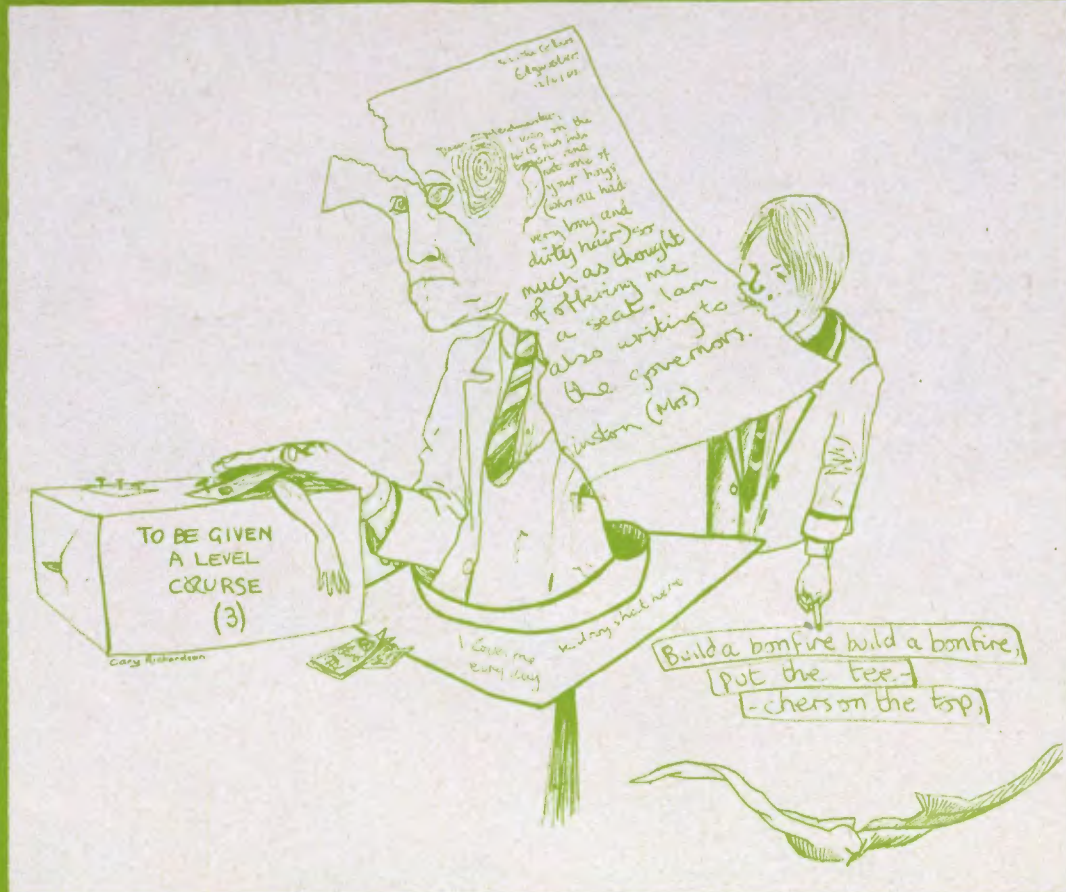 Edgware
Dear Headmaster,
I was on the
bus
and
not one of
your boys
(who all had
very long and
dirty hair) so
much as thought
of offering me
a seat. I am
also writing to
the governors.
(Mrs)
TO BE GIVEN
A LEVEL
COURSE
(3)
Gary Richardson
I
me
every day
Build a bonfire build a bonfire,
put the tea-
-chers on the top,